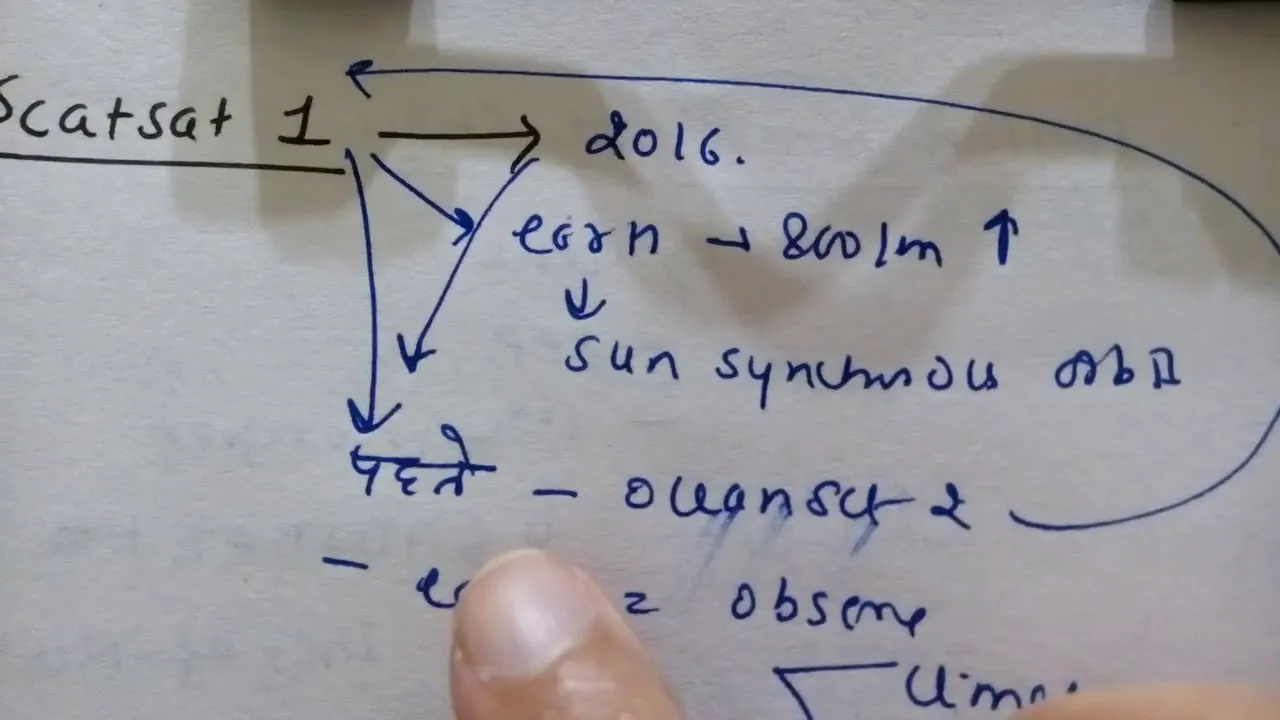 Scatsat 1 → 2016.
earn → 800 km ↑
↓
sun synchronous orbit
पहले - oceansat - 2
- = observe